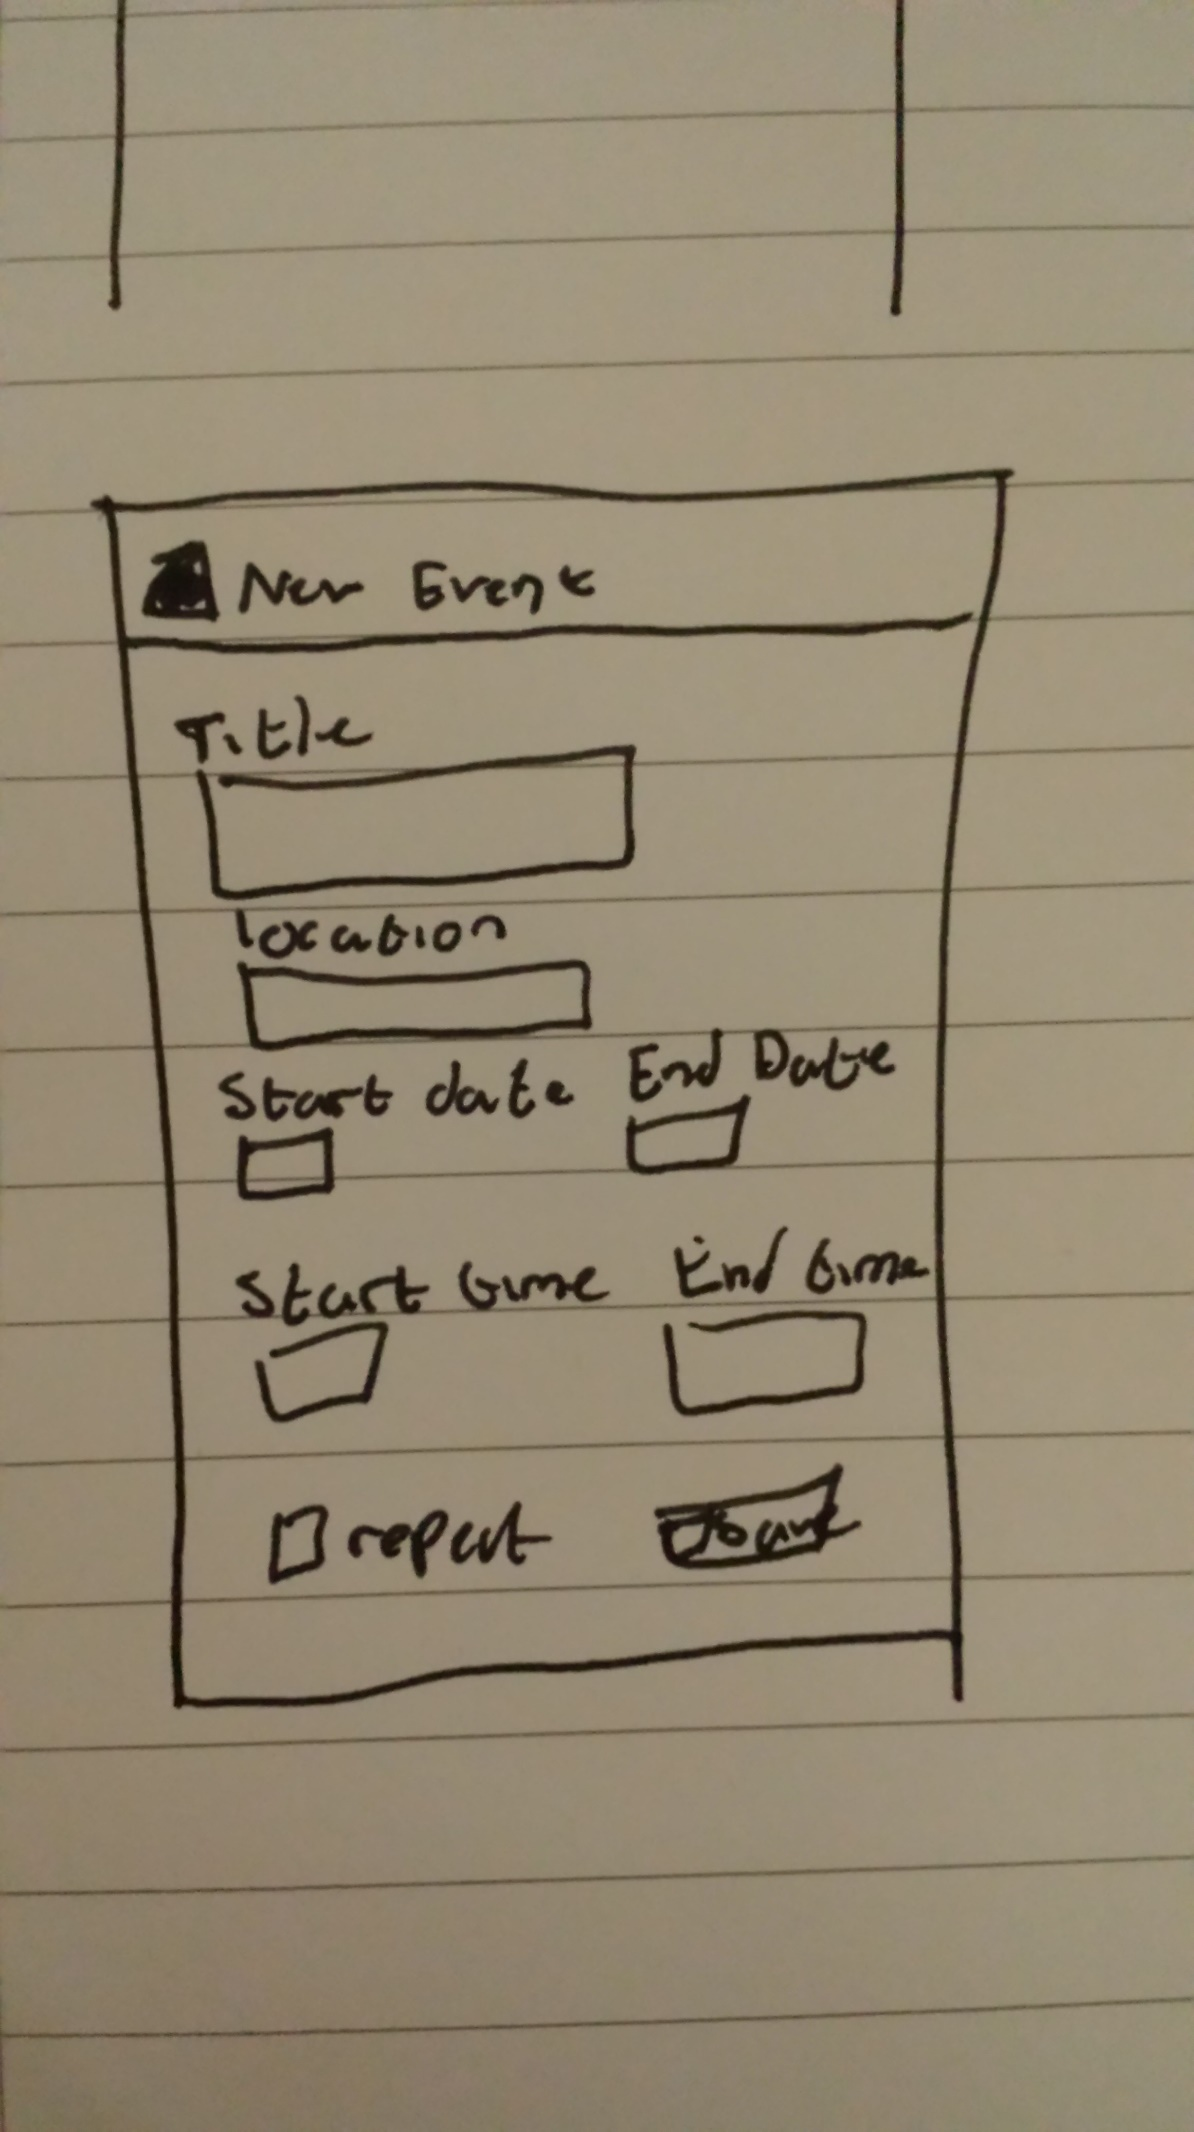 New Event
Title
location
Start date End Date
Start time End time
repeat Save